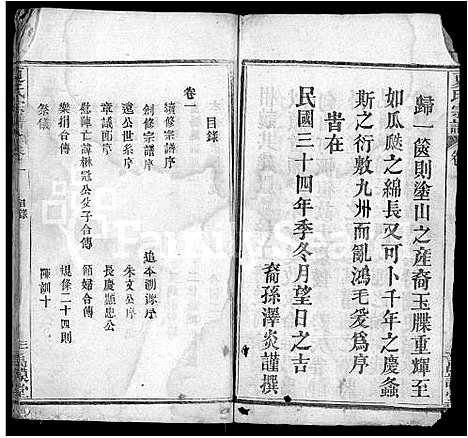 歸一篋則塗山之產裔玉牒重輝至
如瓜瓞之綿長又可卜千年之慶螽
斯之衍敷九州而亂鴻毛爰為序
旹在
民國三十四年季冬月望日之吉
裔孫澤炎謹撰
氏宗譜
卷一
目錄
續修宗譜序
追本溯源序
創修宗譜序
朱文公序
遠公世系序
長慶顯忠公
章議西序
節婦合傳
慰陣亡諱楙冠公父子合傳
規條二十四則
樂捐合傳
陳訓十
祭儀
目錄